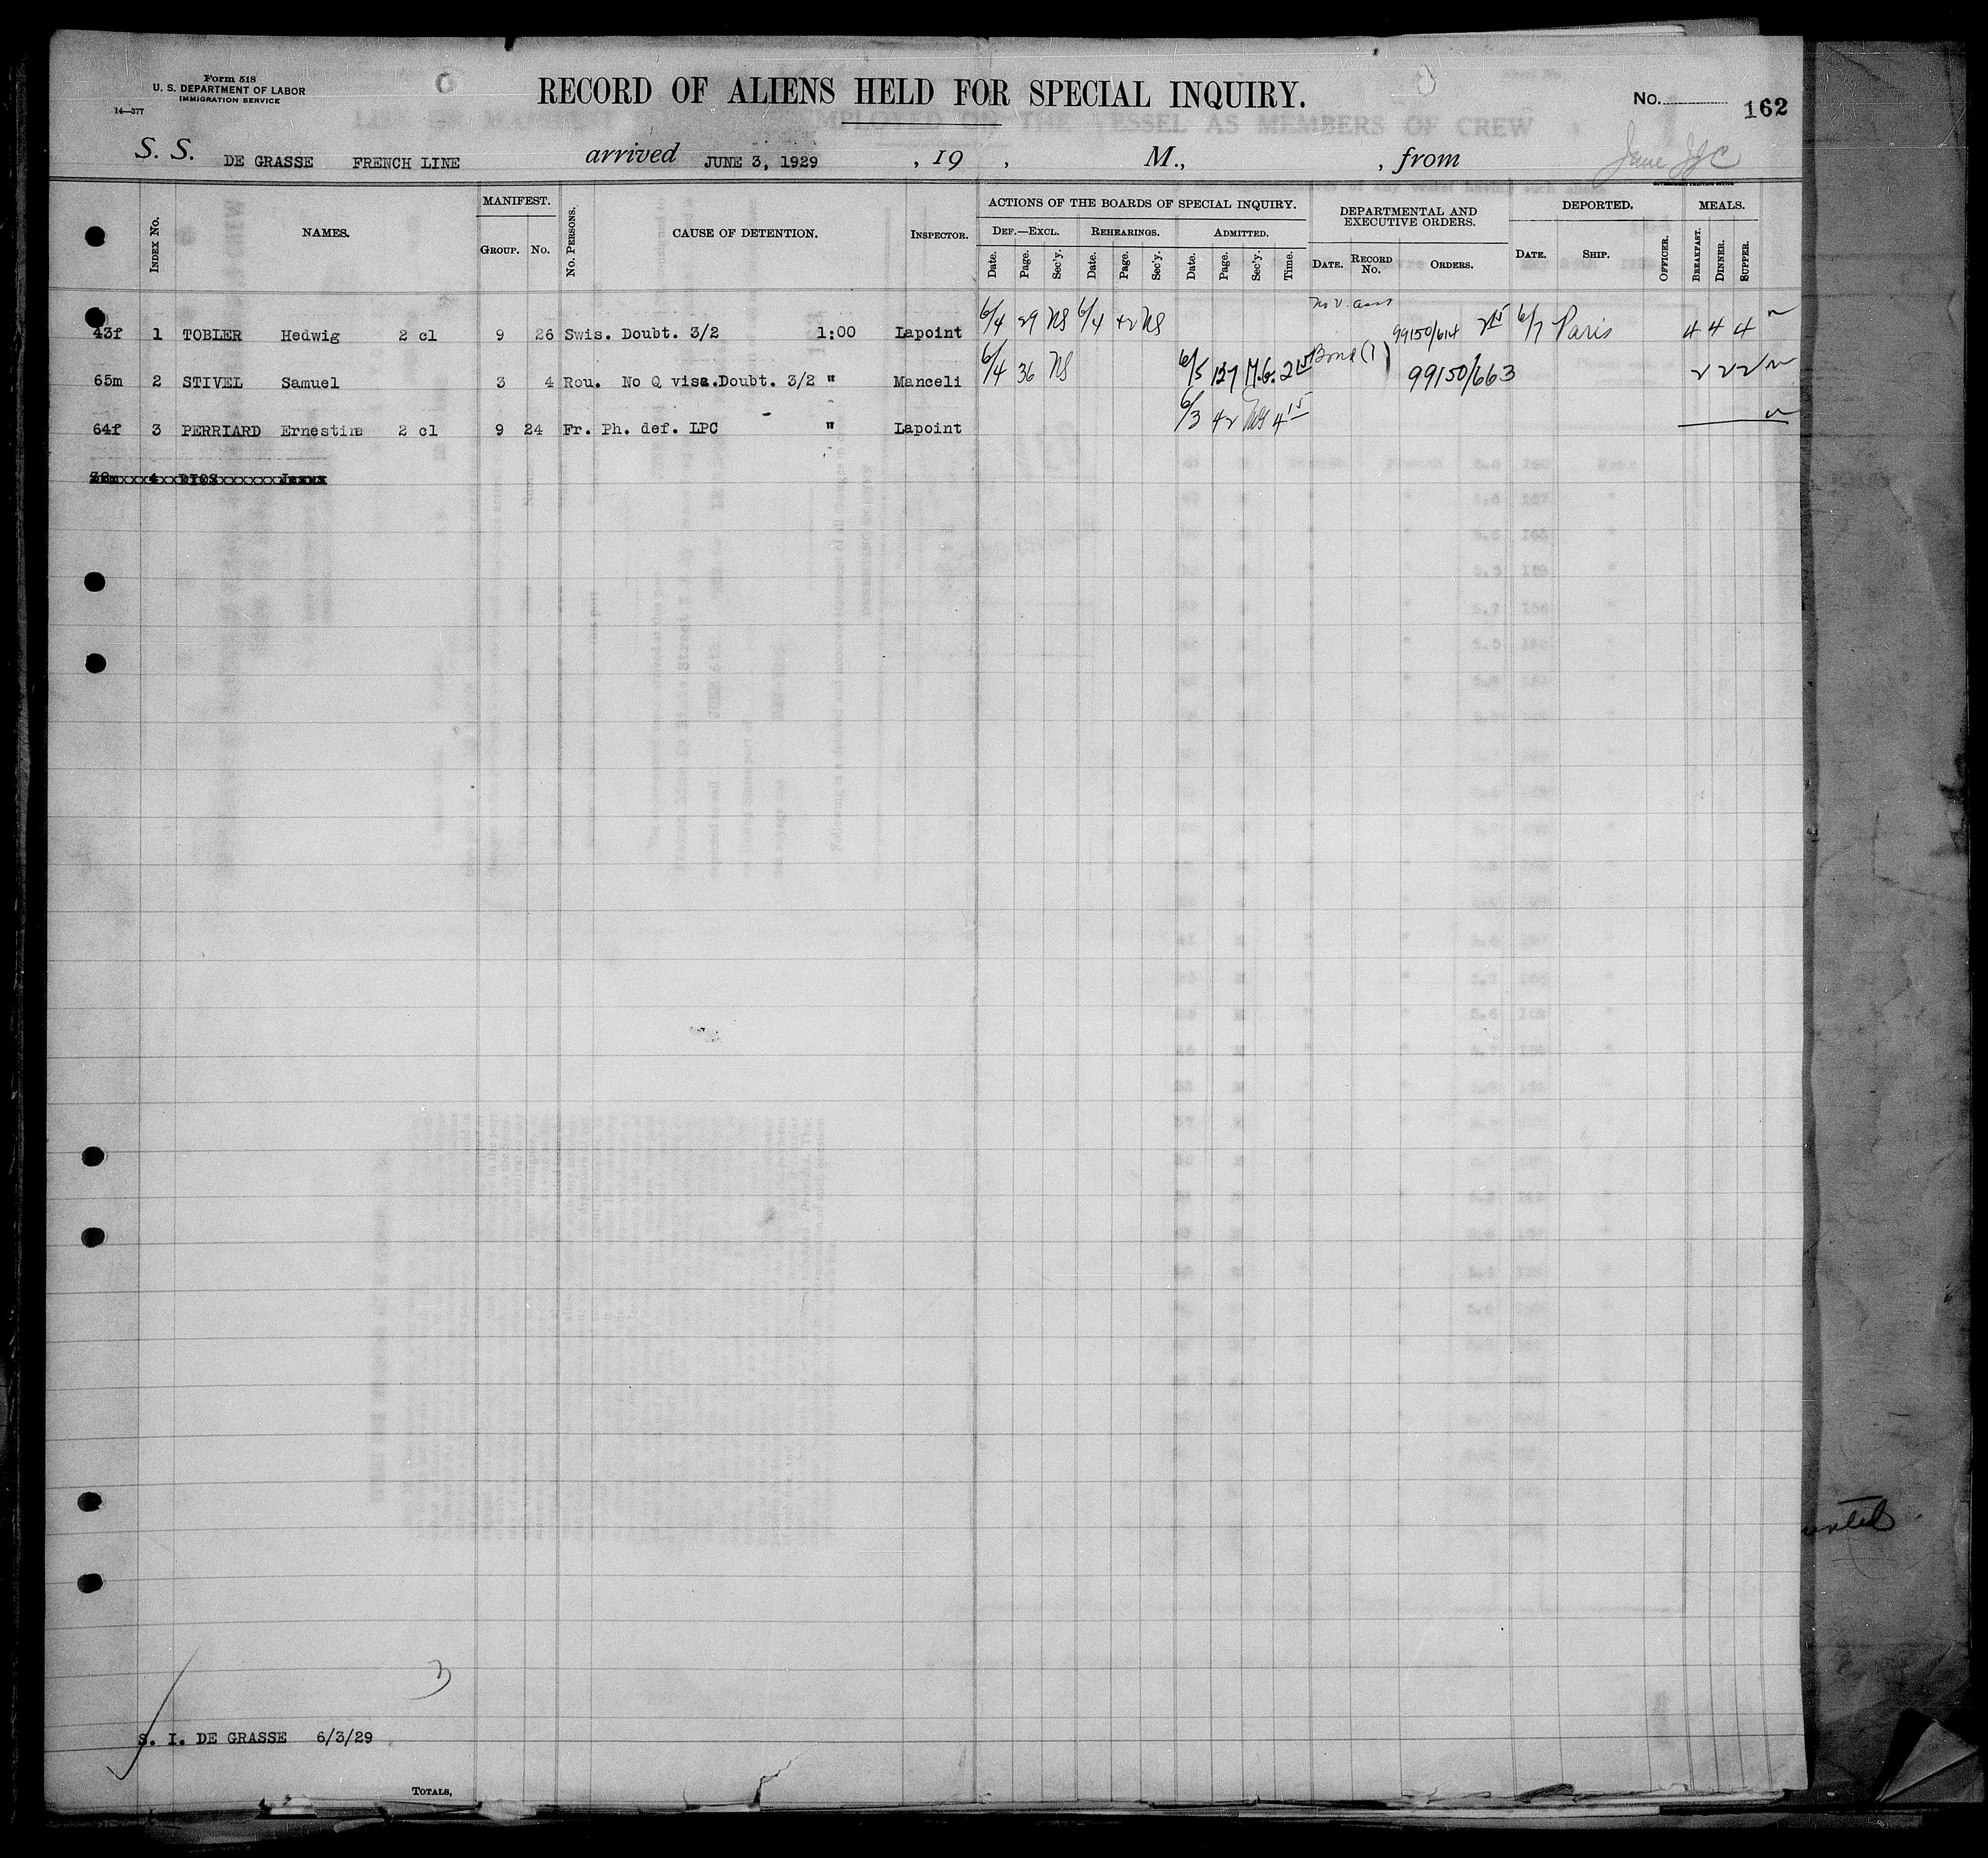 Form 518
U. S. DEPARTMENT OF LABOR
IMMIGRATION SERVICE
14—377
RECORD OF ALIENS HELD FOR SPECIAL INQUIRY.
No. 162
S. S. DE GRASSE FRENCH LINE arrived JUNE 3, 1929 , 19 , M., , from
GOVERNMENT PRINTING OFFICE
Index No. NAMES. MANIFEST. No. Persons. CAUSE OF DETENTION. Inspector. ACTIONS OF THE BOARDS OF SPECIAL INQUIRY. DEPARTMENTAL AND EXECUTIVE ORDERS. DEPORTED. MEALS.
Group. No. Def.—Excl. Rehearings. Admitted.
Date. Page. Sec'y. Date. Page. Sec'y. Date. Page. Sec'y. Time. Date. Record No. Orders. Date. Ship. Officer. Breakfast. Dinner. Supper.
43f 1 TOBLER Hedwig 2 cl 9 26 Swis. Doubt. 3/2 1:00 Lapoint 6/4 29 NS 6/4 42 NS 99150/614 6/7 Paris 4 4 4
65m 2 STIVEL Samuel 3 4 Rou. No Q visa.Doubt. 3/2 " Manceli 6/4 36 NS 6/5 137 M.G. 2 15 Bond (1) 99150/663 2 2 2
64f 3 PERRIARD Ernestine 2 cl 9 24 Fr. Ph. def. LPC " Lapoint 6/3 42 4 15
38mxxx4xxDIOSxxxxxxx
3
S. I. DE GRASSE 6/3/29
Totals,